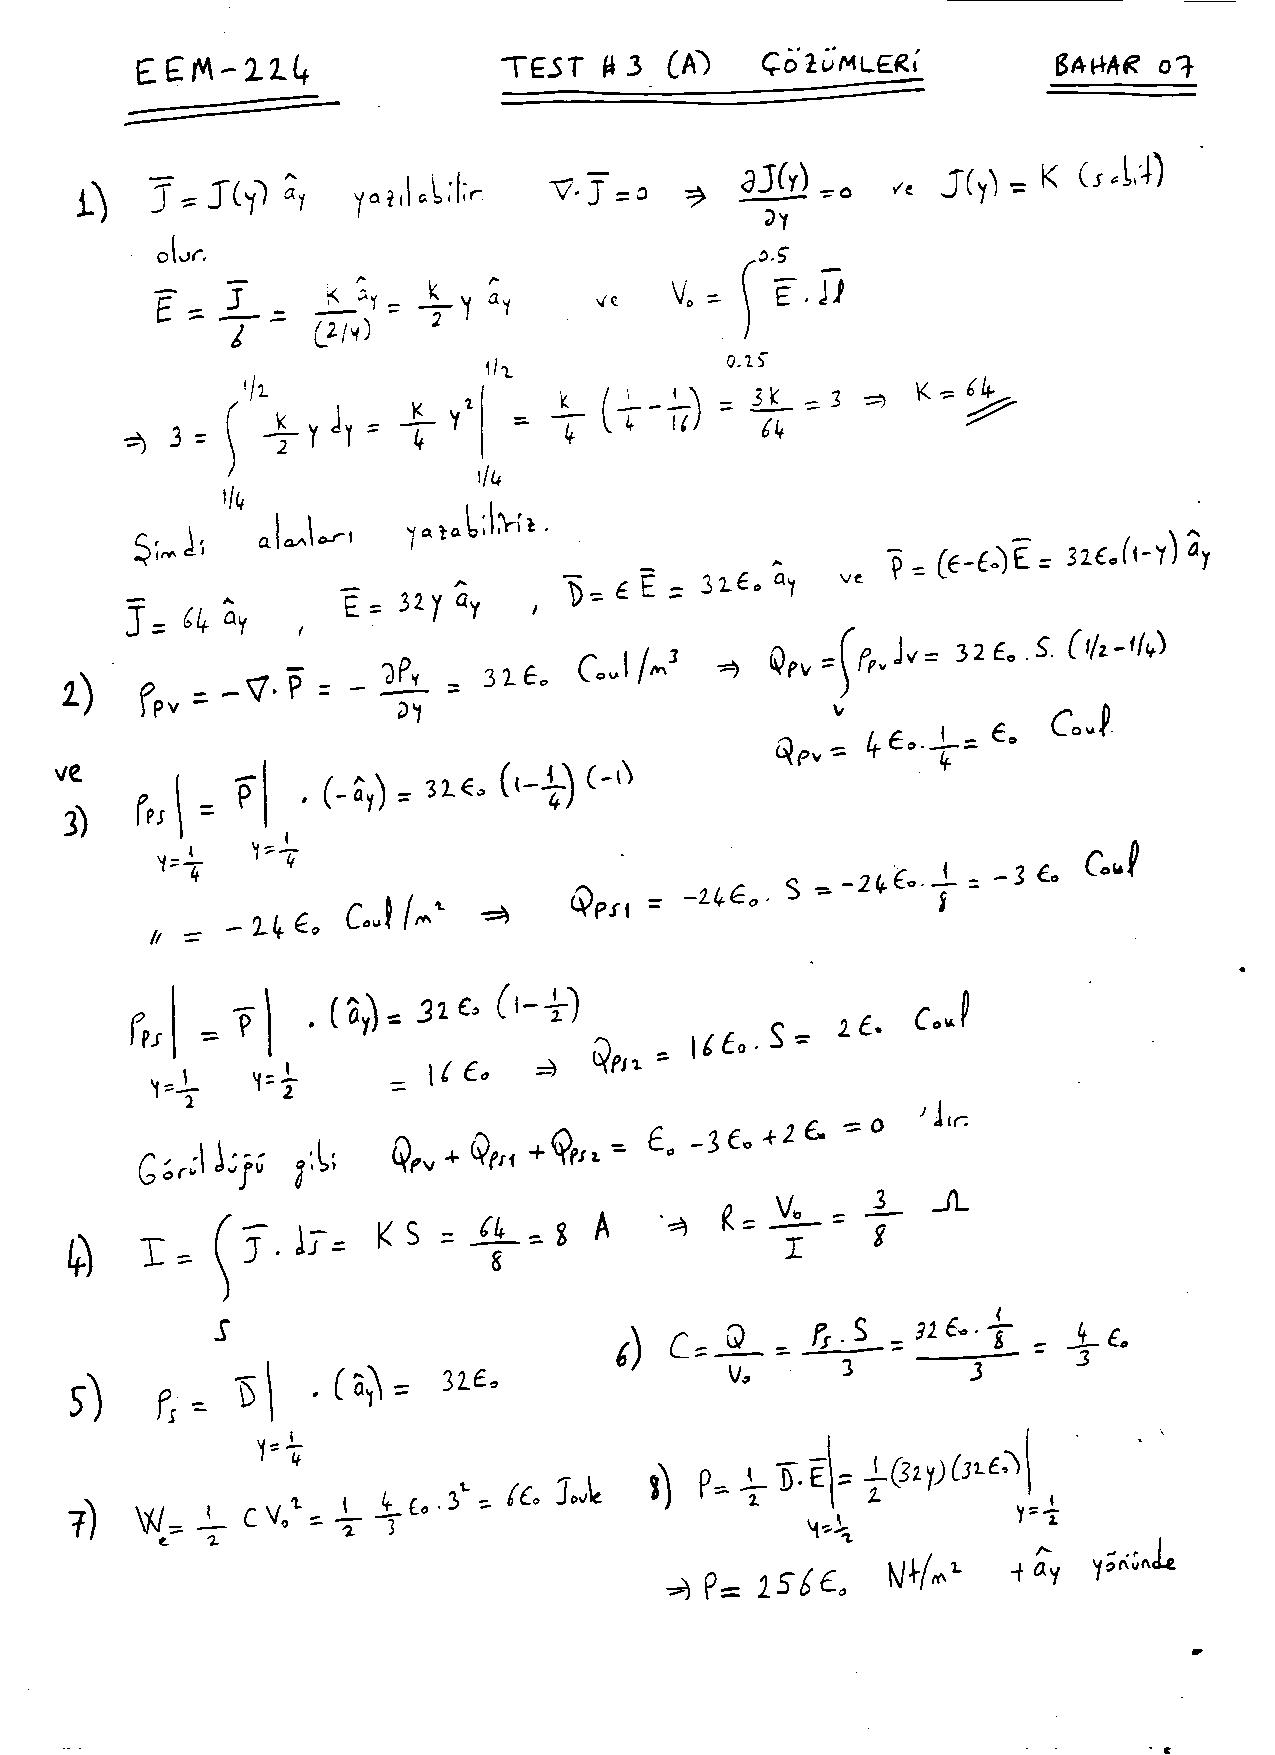 EEM-224 TEST #3 (A) ÇÖZÜMLERİ BAHAR 07
1) J̅ = J(y) â_y yazılabilir. ∇·J̅ = 0 ⇒ ∂J(y)/∂y = 0 ve J(y) = K (sabit)
olur.
E̅ = J̅/б = K â_y/(2/y) = K/2 y â_y ve V₀ = ∫_{0.25}^{0.5} E̅ . dl̅
⇒ 3 = ∫_{1/4}^{1/2} K/2 y dy = K/4 y² |_{1/4}^{1/2} = K/4 (1/4 - 1/16) = 3K/64 = 3 ⇒ K = 64
Şimdi alanları yazabiliriz.
J̅ = 64 â_y , E̅ = 32y â_y , D̅ = ϵ E̅ = 32ϵ₀ â_y ve P̅ = (ϵ-ϵ₀)E̅ = 32ϵ₀(1-y) â_y
2) ρ_pv = -∇·P̅ = - ∂P_y/∂y = 32ϵ₀ Coul/m³ ⇒ Q_pv = ∫_v ρ_pv dv = 32ϵ₀.S.(1/2-1/4)
Q_pv = 4ϵ₀.1/4 = ϵ₀ Coul.
ve
3) ρ_ps |_{y=1/4} = P̅ |_{y=1/4} . (-â_y) = 32ϵ₀ (1-1/4) (-1)
〃 = -24ϵ₀ Coul/m² ⇒ Q_ps1 = -24ϵ₀. S = -24ϵ₀.1/8 = -3ϵ₀ Coul
ρ_ps |_{y=1/2} = P̅ |_{y=1/2} . (â_y) = 32ϵ₀ (1-1/2)
= 16ϵ₀ ⇒ Q_ps2 = 16ϵ₀.S = 2ϵ₀ Coul
Görüldüğü gibi Q_pv + Q_ps1 + Q_ps2 = ϵ₀ -3ϵ₀ +2ϵ₀ = 0 'dır.
4) I = ∫_S J̅ . ds̅ = K S = 64/8 = 8 A ⇒ R = V₀/I = 3/8 Ω
5) ρ_s = D̅ |_{y=1/4} . (â_y) = 32ϵ₀
6) C = Q/V₀ = ρ_s.S/3 = 32ϵ₀.1/8/3 = 4/3 ϵ₀
7) W_e = 1/2 C V₀² = 1/2 4/3 ϵ₀.3² = 6ϵ₀ Joule
8) P = 1/2 D̅.E̅ |_{y=1/2} = 1/2 (32y)(32ϵ₀) |_{y=1/2}
⇒ P = 256ϵ₀ Nt/m² +â_y yönünde